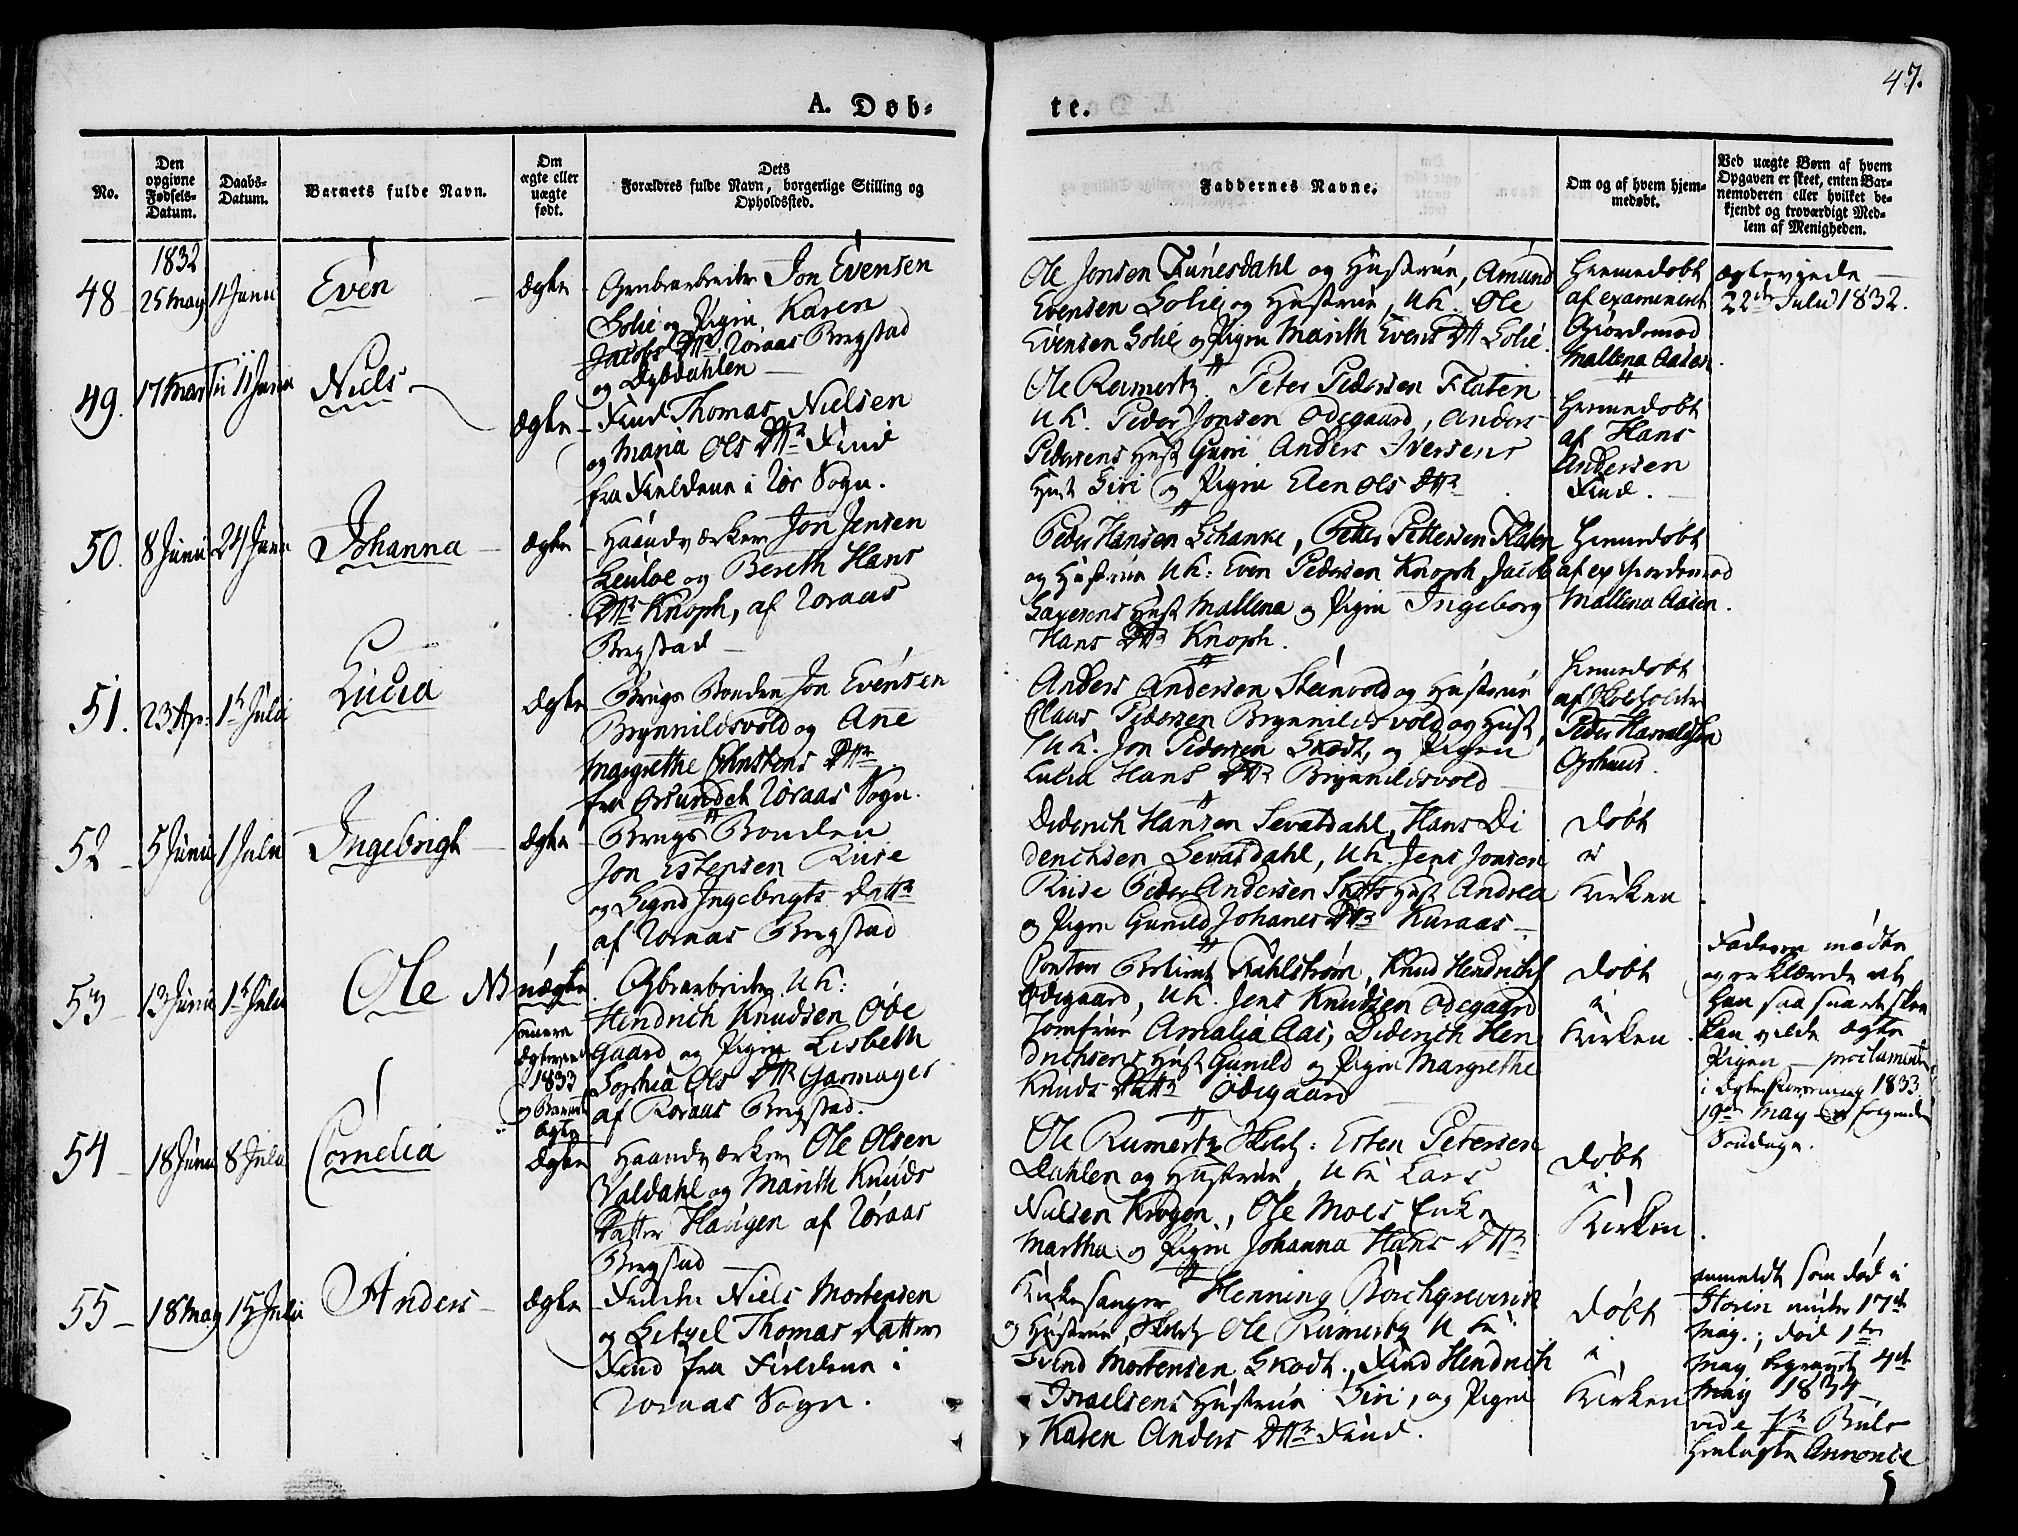 47.
A. Døb-
te.
No.
Den opgivne Fødsels-Datum.
Daabs-Datum.
Barnets fulde Navn.
Om ægte eller uægte født.
Dets
Forældres fulde Navn, borgerlige Stilling og
Opholdssted.
Faddernes Navne.
Om og af hvem hjem-
medøbt.
Ved uægte Børn af hvem
Opgaven er skeet, enten Bar-
nemoderen eller hvilket be-
kjendt og troværdigt Med-
lem af Menigheden.
1832
48
25 May
11 Junii
Even
Ægte
Grubearbeider Jon Evensen
Solie og Pigen Karen
Jacobs Dttr, Röraas Bergstad
og Dybdahlen
Ole Jonsen Funesdahl og Hustrue, Amund
Evensen Solie og Hustrue, UK Ole
Evensen Solie og Pigen Marith Evens Dtt Solie.
Hiemedøbt
af examineret
Giordemod
Mallena Aasen.
Ægteviede
22de Julii 1832.
49.
17 Marti
11 Junii
Niels
Ægte
Find Thomas Nielsen
og Maria Ols Dttr Find
fra Fieldene i Rör Sogn.
Ole Rumertz Peter Pedersen Flaten
UK. Peder Jonsen Ødegaard, Anders
Pedersens Hust Guri Anders Iversens
Hust Siri og Pigen Elen Ols Dttr
Hiemedøbt
af Hans
Andersen
Find.
50.
8 Junii
24 Junii
Johanna
Ægte
Haandværker Jon Jensen
Leuloe og Bereth Hans
Dttr Knoph, af Röraas
Bergstad
Peder Hansen Schanke, Petter Pettersen Flaten
og Hustrue UK: Even Pedersen Knoph, Jacob
Hust Mallena og Pigen Ingeborg
Hans Dttr Knoph.
Hiemedøbt
af ex Giordemod
Mallena Aasen.
51.
23 Ap:
1ste Julii
Lucia
Ægte
Brugs Bonden Jon Evensen
Brynnildsvold og Ane
Margrethe Christens Dttr
fra Röraas Sogn.
Anders Andersen Steinvold og Hustrue
Claus Pedersen Brynnildsvold og Hust
UK. Jon Pedersen Skodt, og Pigen
Lucia Hans Dttr Brynnildsvold
Hiemedøbt
af Skoleholder
Peder Haraldsen
52
5 Junii
1 Julii
Ingebrigt
Ægte
Brugs Bonden
Jon Estensen Riise
og Signd Ingebrigts Dattr
af Röraas Bergstad
Diderich Hansen Sevatdahl, Hans Di
derichsen Sevatdahl, UK. Jens Jonsen
Riise Peder Andersen Skots Hust Andrea
og Pigen Gunild Johanes Dttr Kuraas
døbt
i
Kirken
53
13 Junii
1ste Julii
Ole
NB
uægte
senere
Ægteviede
1833
og Barnet
ægte
Grubearbeider UK:
Hendrich Knudsen Øde
Gaard og Pigen Lisbeth
Sophia Ols Dttr Garmager
af Roraas Bergstad.
Fahlstrøm, Knud Hendrichs
Ødegaard, UK. Jens Knudsen Ødegaard
Jomfrue Amalia Aas, Diderich Hen
drichsens Hust Gunild og Pigen Margrethe
Knuds Dattr Ødegaard
døbt
i
Kirken
Faderen mødte
og erklærede at
han saa snart skee
kan vilde ægte
Pigen
i 1833
19de May og følgende
Søndage.
54
18 Junii
8 Julii
Cornelia
Ægte
Haandværker Ole Olsen
Valdahl og Marith Knuds
Datter Haugen af Röraas
Bergstad
Ole Rumertz Esten Petersen
Dahlen og Hustrue, UK Lars
Nielsen Krogen, Ole Moes Enke
Martha og Pigen Johanna Hans Dttr
døbt
i
Kirken
55
18 May
15 Julii
Anders
Ægte
Niels Mortensen
og Thomas Datter
Find fra Fieldene i
Röraas Sogn.
Kirkesanger Henning Borchgrevink
og Hustrue, Ole Rumertz UK
Svend Mortensen Skodt, Find Hendrich
Israelsens Hustrue Siri, og Pigen
Karen Anders Dttr Find.
døbt
i
Kirken
anmeldt som død i
under 17de
May; død 1ste
May begravet 4de
May 1834
vide
Annonce